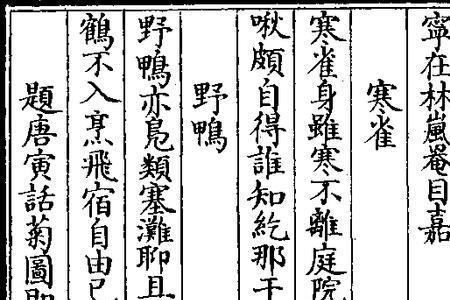 寧在林嵐菴目嘉
寒雀
寒雀身雖寒不離庭院
啾頗自得誰知紇那干
野鴨
野鴨亦鳧類塞灘聊且
鶴不入烹飛宿自由已
題唐寅話菊圖